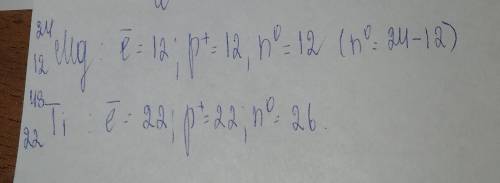 ²⁴₁₂Mg : ē = 12; p⁺ = 12; n⁰ = 12 (n⁰ = 24-12)
⁴⁸₂₂Ti : ē = 22; p⁺ = 22; n⁰ = 26.